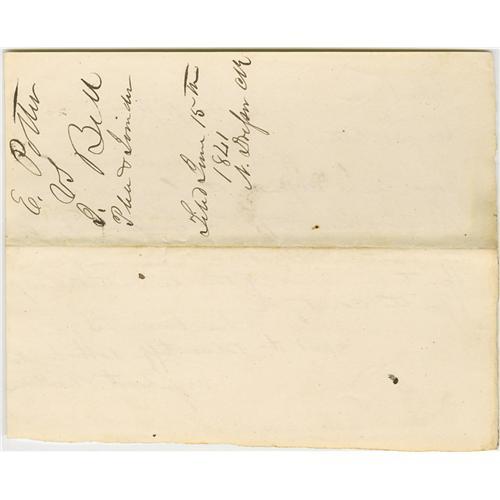 E. Potter
vs
P. Bell
Plea & Similiter
Filed June 15th
1841
N. Dresser Clk